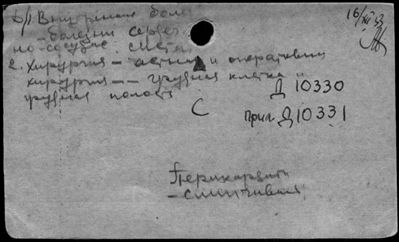 1. Внутренние боле
- болезни сердеч
но-сосудис. систем
2. Хирургия - частная и оперативн
хирургия -- грудная клетка и
грудная полость
Д 10330
С
прил. Д 10331
Перикардит
- слипчивый